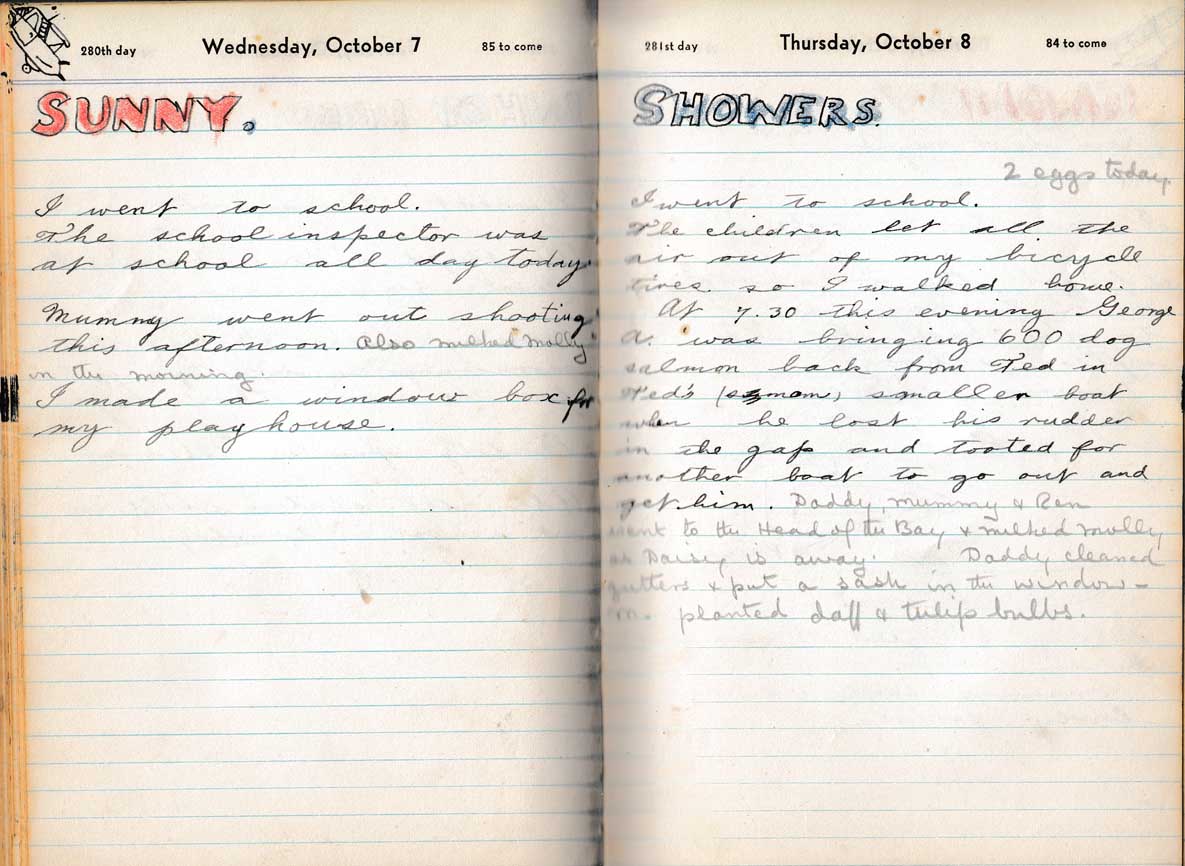 280th day Wednesday, October 7 85 to come
SUNNY.
I went to school.
The school inspector was
at school all day today.
Mummy went out shooting
this afternoon. Also milked Molly
in the morning.
I made a window box for
my playhouse.
281st day Thursday, October 8 84 to come
SHOWERS.
2 eggs today.
I went to school.
The children let all the
air out of my bicycle
tires so I walked home.
At 7.30 this evening George
A. was bringing 600 dog
salmon back from Ted in
Ted's ( ) smaller boat
when he lost his rudder
in the gap and tooted for
another boat to go out and
get him. Daddy, Mummy & Ren
went to the Head of the Bay & milked Molly
as Daisy is away. Daddy cleaned
gutters & put a sash in the window -
m. planted daff & tulip bulbs.